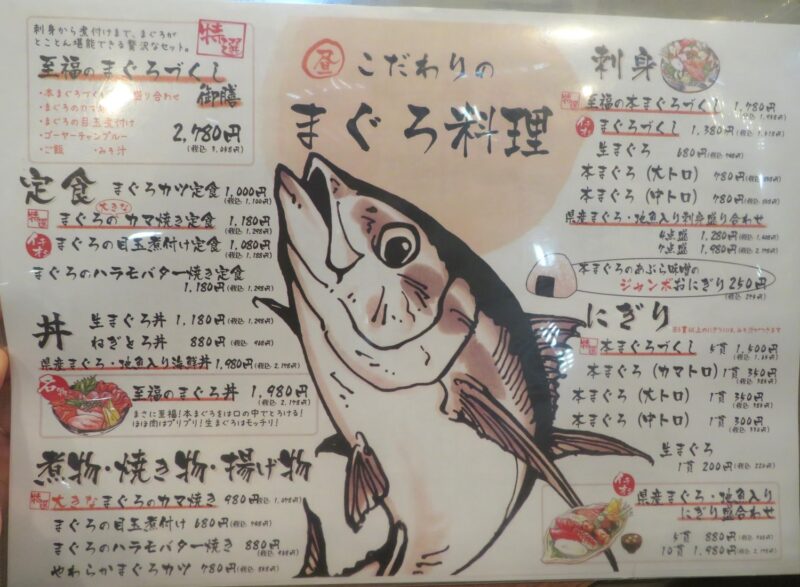 刺身から煮付けまで、まぐろが
とことん堪能できる贅沢なセット。
特選
至福のまぐろづくし
御膳
・本まぐろづくし盛り合わせ
・まぐろのカマ
・まぐろの目玉煮付け
・ゴーヤーチャンプルー
・ご飯 ・みそ汁
2,780円
(税込 3,058円)
定食
まぐろカツ定食 1,000円
(税込 1,100円)
特選 大きな
まぐろのカマ焼き定食 1,180円
(税込 1,298円)
イチオシ まぐろの目玉煮付け定食 1,080円
(税込 1,188円)
まぐろのハラモバター焼き定食
1,180円(税込 1,298円)
丼
生まぐろ丼 1,180円(税込 1,298円)
ねぎとろ丼 880円(税込 968円)
県産まぐろ・地魚入り海鮮丼 1,980円(税込 2,178円)
名物
至福のまぐろ丼 1,980円
(税込 2,178円)
まさに至福!本まぐろは口の中でとろける!
ほほ肉はプリプリ!生まぐろはモッチリ!
煮物・焼き物・揚げ物
特選 大きなまぐろのカマ焼き 980円(税込 1,078円)
まぐろの目玉煮付け 680円(税込 748円)
まぐろのハラモバター焼き 880円
(税込 968円)
やわらかまぐろカツ 780円(税込 858円)
昼 こだわりの
まぐろ料理
刺身
特選 至福の本まぐろづくし 1,780円
イチオシ まぐろづくし 1,380円
生まぐろ 680円(税込 748円)
本まぐろ (大トロ) 780円(税込 858円)
本まぐろ (中トロ) 780円(税込 858円)
県産まぐろ・地魚入り刺身盛り合わせ
4点盛 1,280円(税込 1,408円)
7点盛 1,980円(税込 2,178円)
本まぐろのあぶら味噌の
ジャンボおにぎり 250円
にぎり
特選 本まぐろづくし 5貫 1,500円
(税込 1,650円)
本まぐろ (カマトロ) 1貫 350円
(税込 385円)
本まぐろ (大トロ) 1貫 350円
(税込 385円)
本まぐろ (中トロ) 1貫 300円
(税込 330円)
生まぐろ
1貫 200円(税込 220円)
イチオシ
県産まぐろ・地魚入り
にぎり盛合わせ
5貫 880円(税込 968円)
10貫 1,980円(税込 2,178円)